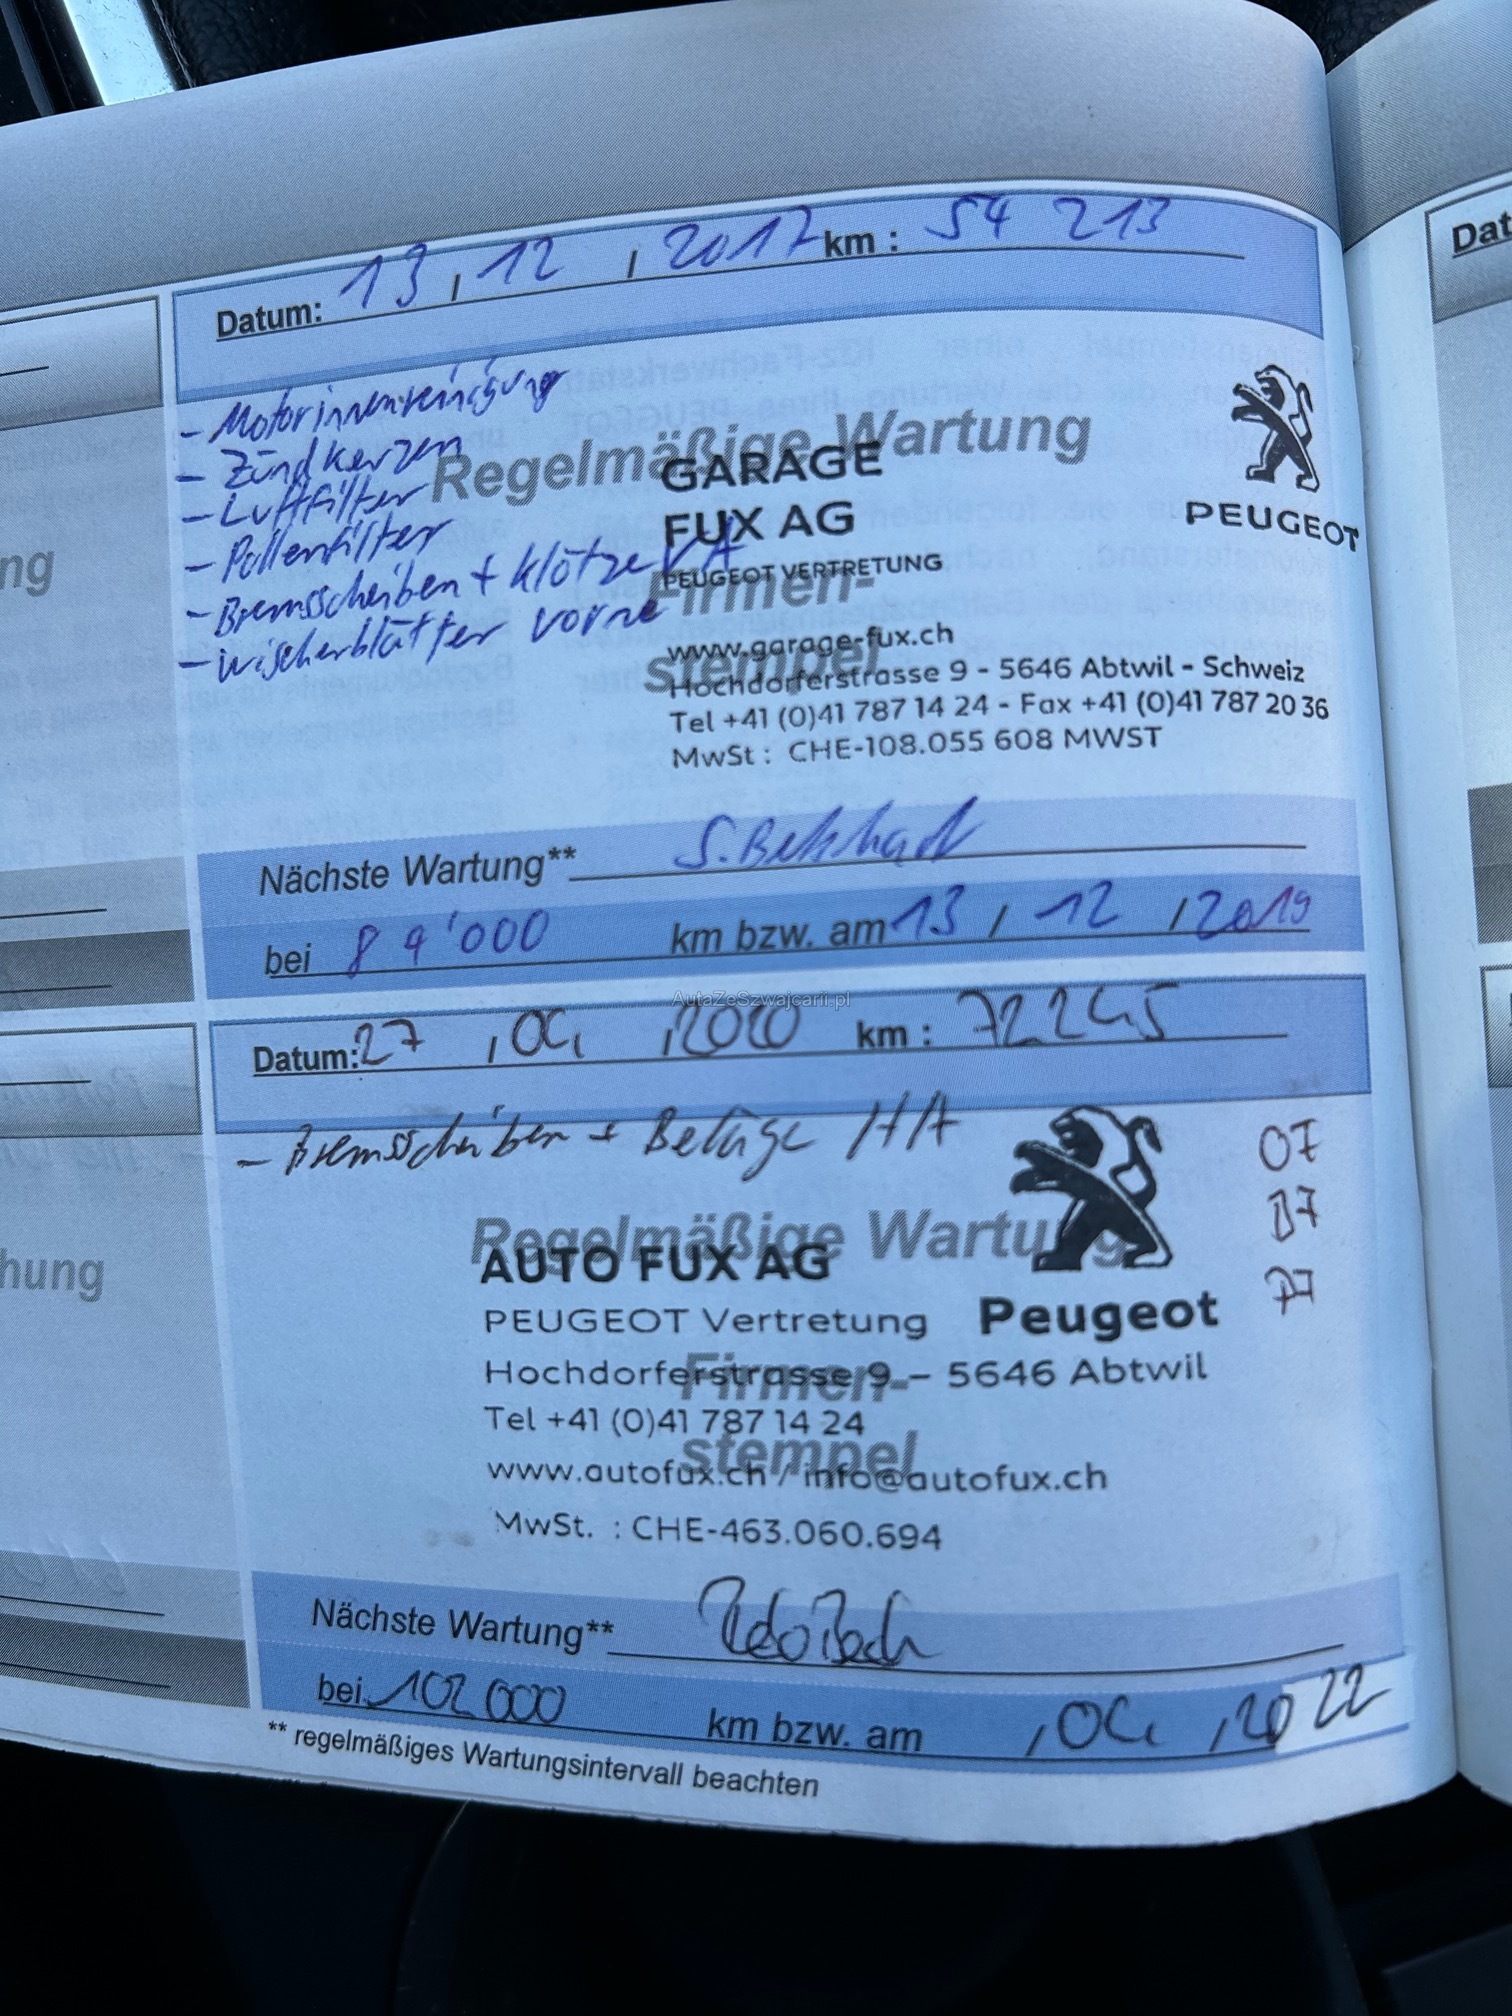 Datum: 13 , 12 , 2017 km : 54 213
- Motorinnenreinigung
- Zündkerzen
- Luftfilter
- Pollenfilter
- Bremsscheiben + Klötze VA
- Wischerblätter vorne
Regelmäßige Wartung
Firmen-
stempel
GARAGE
FUX AG
PEUGEOT VERTRETUNG
www.garage-fux.ch
Hochdorferstrasse 9 - 5646 Abtwil - Schweiz
Tel +41 (0)41 787 14 24 - Fax +41 (0)41 787 20 36
MwSt : CHE-108.055 608 MWST
PEUGEOT
Nächste Wartung**
bei 89'000 km bzw. am 13 , 12 , 2019
AutaZeSzwajcarii.pl
Datum: 27 , 04 , 2020 km : 72245
- Bremsscheiben + Beläge HA
07
Regelmäßige Wartung
Firmen-
stempel
AUTO FUX AG
PEUGEOT Vertretung Peugeot
Hochdorferstrasse 9 – 5646 Abtwil
Tel +41 (0)41 787 14 24
www.autofux.ch / info@autofux.ch
MwSt. : CHE-463.060.694
Nächste Wartung**
bei 102 000 km bzw. am , 04 , 2022
** regelmäßiges Wartungsintervall beachten
ng
hung
Dat